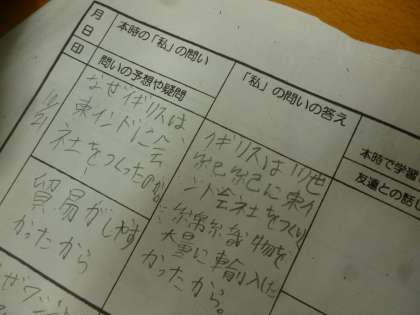 月
日
印
本時の「私」の問い
問いの予想や疑問
「私」の問いの答え
本時で学習
友達との話し
なぜイギリスは
東インドに会
社をつくったのか
貿易がしやす
かったから
イギリスは17世
紀に東イ
ンド会社をつくり
綿織物を
大量に輸入した
かったから。